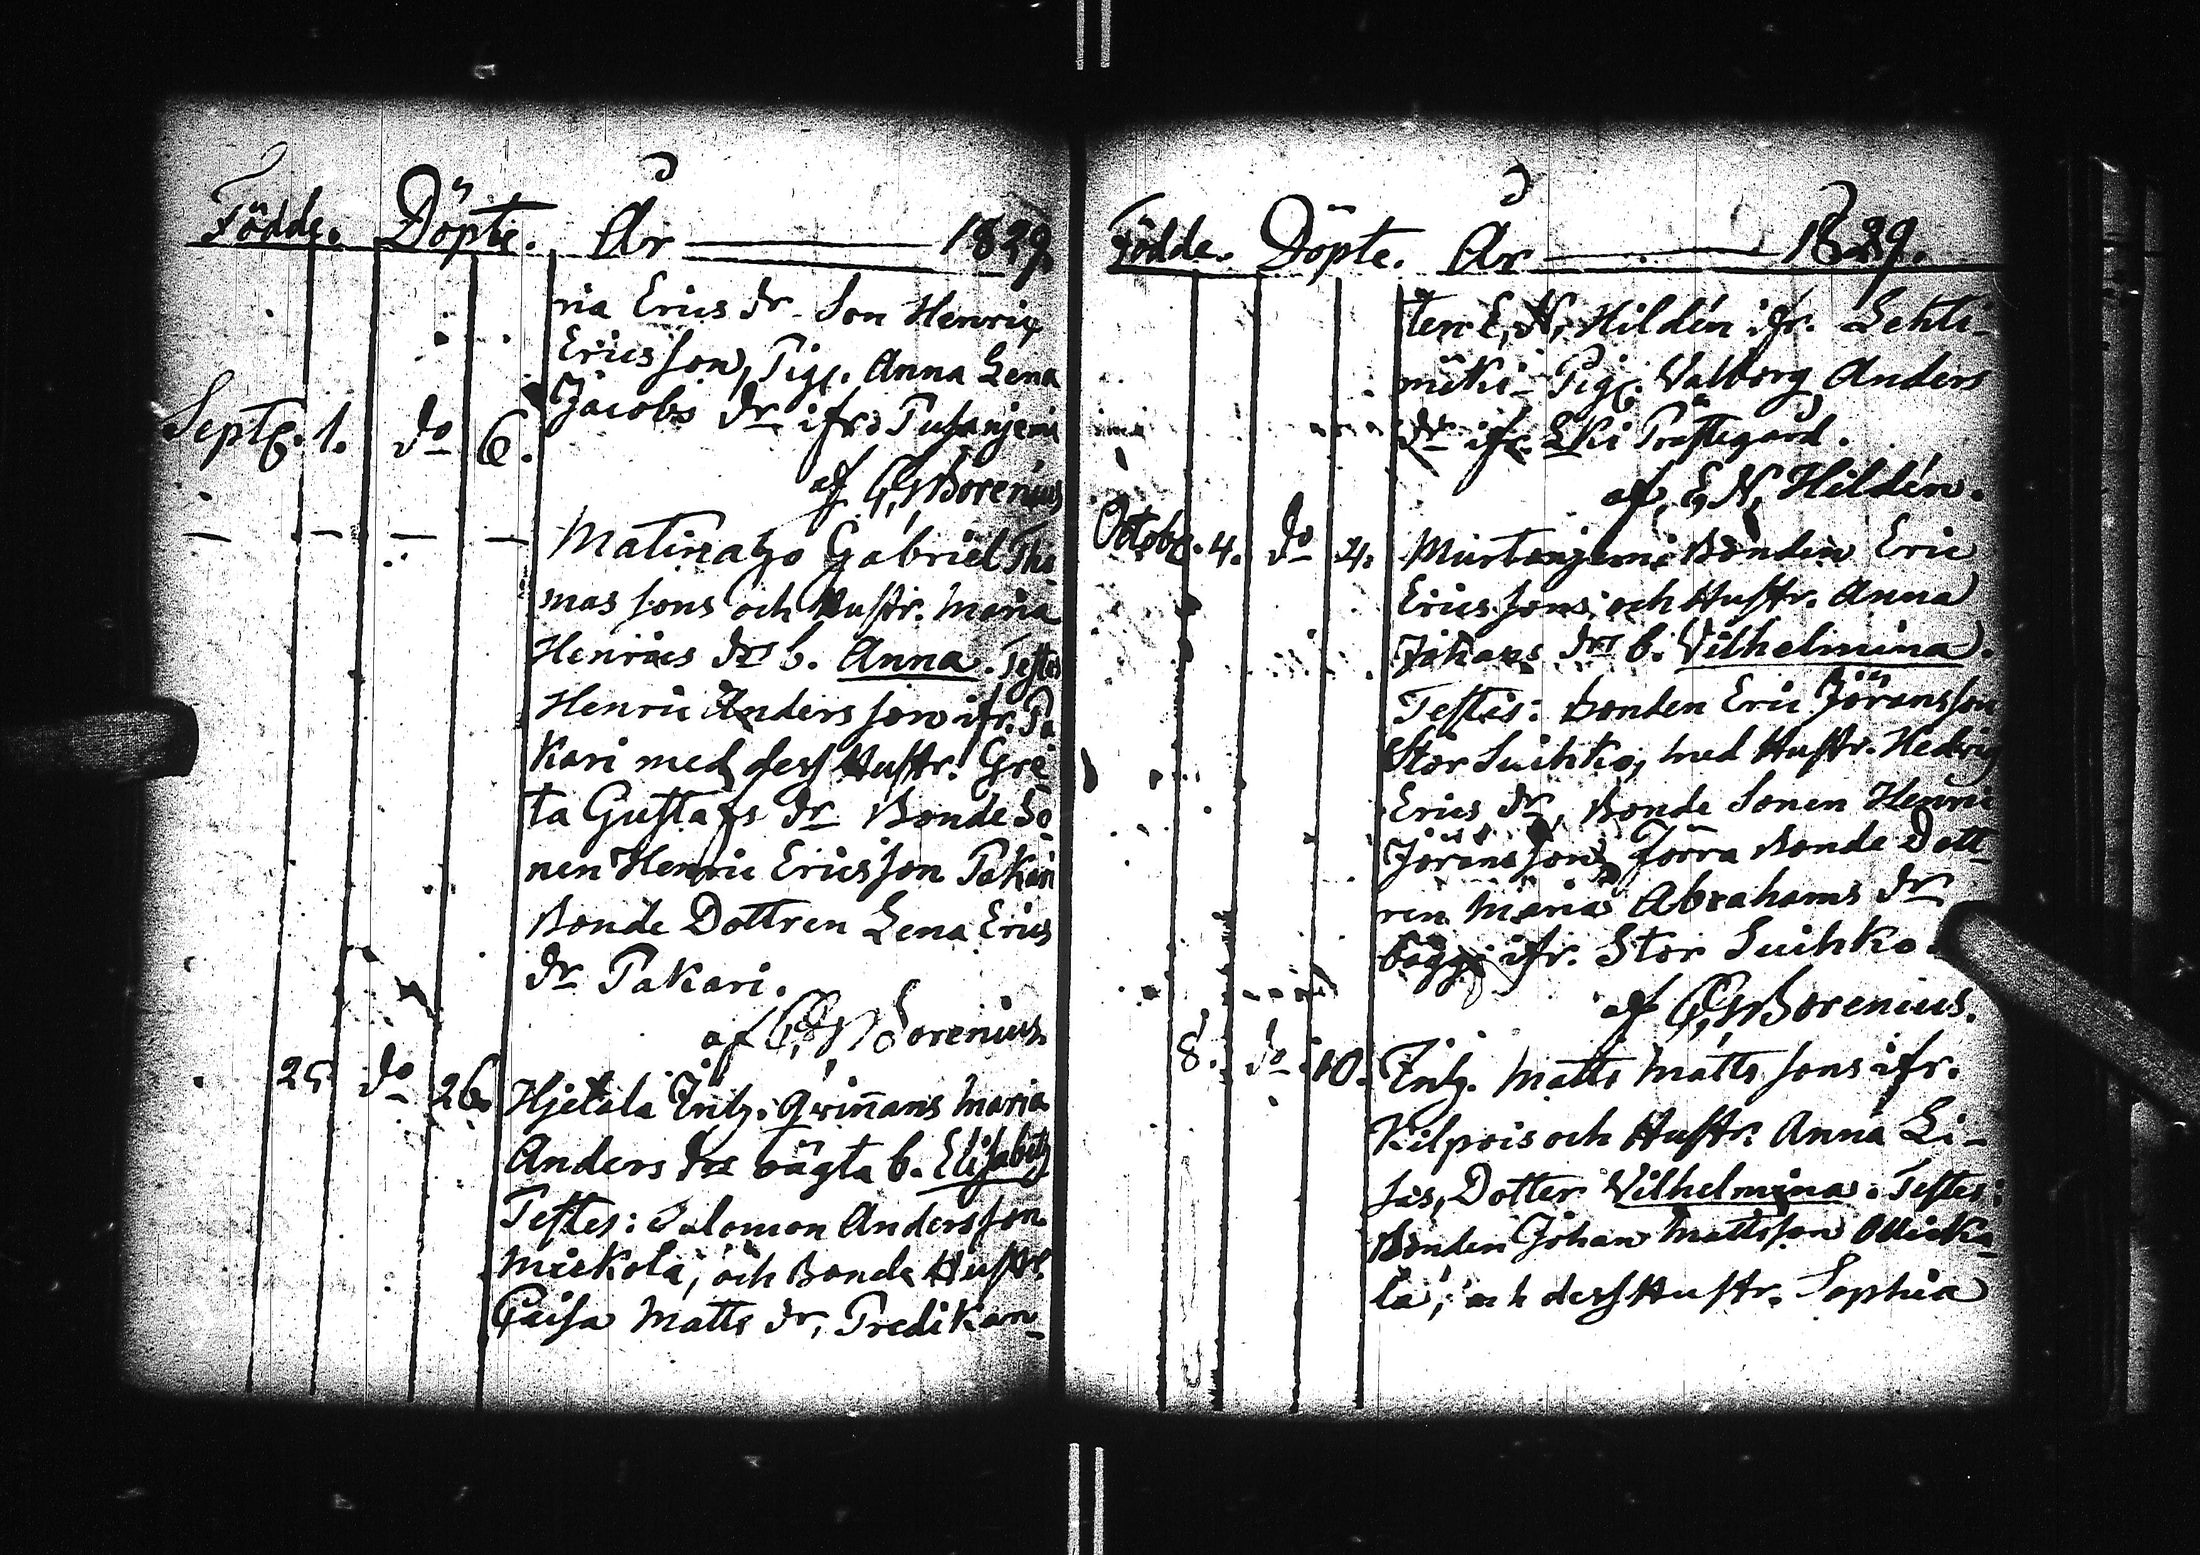 Födde. Döpte. År 1829.
ria Erics dr. Son Henric
Ericsson, Pig. Anna Lena
Jacobs dr ifr. Pusanjemi
Septe. 1. do 6.
af G, G, Borenius
Matinatzo Gabriel Tho-
mas sons och Hustr. Maria
Henrics drs b. Anna. Testes
Henric Andersson ifr. Pa
kari med dess Hustr. Gre
ta Gustafs dr Bonde So-
nen Henric Ericsson Pakari
Bonde Dottren Lena Erics
dr Pakari.
af G, G, Borenius.
25. do 26. Hjetala Inh. Qvinnans Maria
Anders drs oägta b. Elisabeth
Testes: Salomon Andersson
Mickola, och Bonde Hustr.
Caisa Matts dr, Predikan-
Födde. Döpte. År 1829.
ten E, N, Hildén ifr. Lehti-
mäki Pig. Valborg Anders
dr ifr. Lki Prästegård.
af, E, N, Hildén.
Octobr. 4. do 4. Murtanjemi Bonden Eric
Ericssons och Hustr. Anna
Johans drs b. Vilhelmina.
Testis: Bonden Eric Jöransson
Stor Suihko, med Hustr. Hedvig
Erics dr, Bonde Sonen Henric
Jöransson, Förra Bonde Dott-
ren Maria Abrahams dr
bägge ifr. Stor Suihko.
af G, G, Borenius.
8. do 10. Inh. Matts Matts sons ifr.
Kilpois och Hustr. Anna Li-
sas, Dotter Vilhelmina. Testes:
Bonden Johan Mattsson
la, och dess Hustr. Sophia